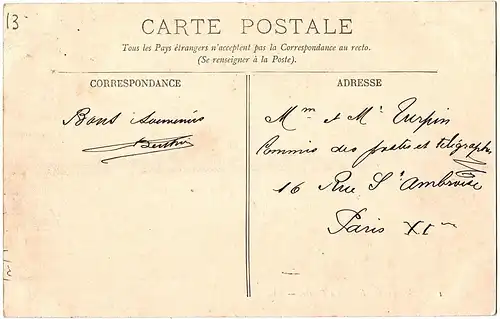 13
CARTE POSTALE
Tous les Pays étrangers n'acceptent pas la Correspondance au recto.
(Se renseigner à la Poste).
CORRESPONDANCE
ADRESSE
Bons souvenirs
Mme et Mr Turpin
Commis des postes et télégraphes
16 Rue St Ambroise
Paris XIe